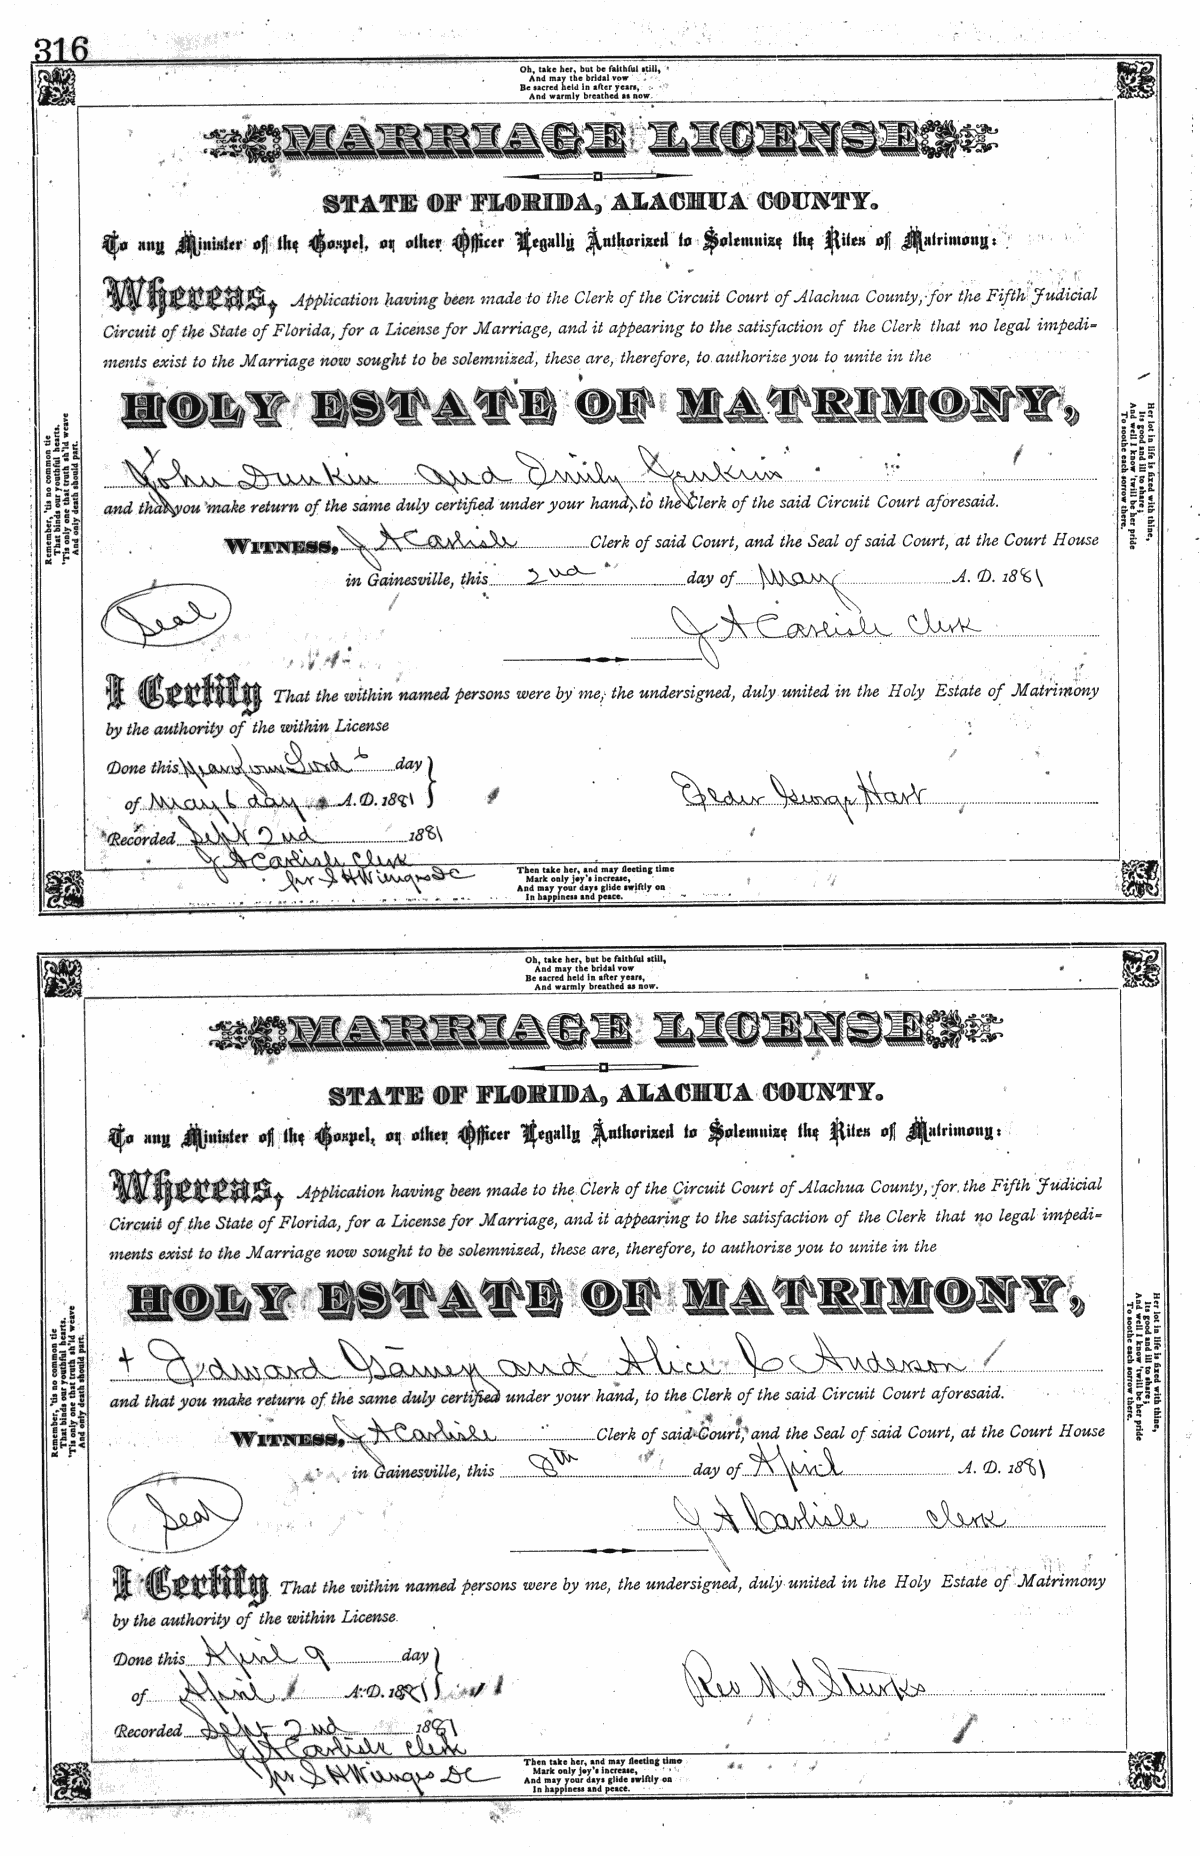 316
Oh, take her, but be faithful still,
And may the bridal vow
Be sacred held in after years,
And warmly breathed as now.
MARRIAGE LICENSE
STATE OF FLORIDA, ALACHUA COUNTY.
To any Minister of the Gospel, or other Officer Legally Authorized to Solemnize the Rites of Matrimony:
Whereas, Application having been made to the Clerk of the Circuit Court of Alachua County, for the Fifth Judicial
Circuit of the State of Florida, for a License for Marriage, and it appearing to the satisfaction of the Clerk that no legal impedi-
ments exist to the Marriage now sought to be solemnized, these are, therefore, to authorize you to unite in the
HOLY ESTATE OF MATRIMONY,
John Dunkin and Emily Jenkins
and that you make return of the same duly certified under your hand, to the Clerk of the said Circuit Court aforesaid.
WITNESS, J A Carlisle Clerk of said Court, and the Seal of said Court, at the Court House
in Gainesville, this 2nd day of May A. D. 1881
Seal
J A Carlisle Clerk
I Certify That the within named persons were by me, the undersigned, duly united in the Holy Estate of Matrimony
by the authority of the within License
Done this year of our Lord 6 day
of May 6 day A. D. 1881
Elder George Hart
Recorded Sept 2nd 1881
J A Carlisle Clerk
pr S H Wienges DC
Then take her, and may fleeting time
Mark only joy's increase,
And may your days glide swiftly on
In happiness and peace.
Remember, 'tis no common tie
That binds our youthful hearts,
'Tis only one that truth sh'ld weave
And only death should part.
Her lot in life is fixed with thine,
Its good and ill to share;
And well I know 'twill be her pride
To soothe each sorrow there.
Oh, take her, but be faithful still,
And may the bridal vow
Be sacred held in after years,
And warmly breathed as now.
MARRIAGE LICENSE
STATE OF FLORIDA, ALACHUA COUNTY.
To any Minister of the Gospel, or other Officer Legally Authorized to Solemnize the Rites of Matrimony:
Whereas, Application having been made to the Clerk of the Circuit Court of Alachua County, for the Fifth Judicial
Circuit of the State of Florida, for a License for Marriage, and it appearing to the satisfaction of the Clerk that no legal impedi-
ments exist to the Marriage now sought to be solemnized, these are, therefore, to authorize you to unite in the
HOLY ESTATE OF MATRIMONY,
+ Edward Gainey and Alice C Anderson
and that you make return of the same duly certified under your hand, to the Clerk of the said Circuit Court aforesaid.
WITNESS, J A Carlisle Clerk of said Court, and the Seal of said Court, at the Court House
in Gainesville, this 8th day of April A. D. 1881
Seal
J A Carlisle Clerk
I Certify That the within named persons were by me, the undersigned, duly united in the Holy Estate of Matrimony
by the authority of the within License
Done this April 9 day
of April A. D. 1881
Rev M A Sturks
Recorded Sept 2nd 1881
J A Carlisle Clerk
pr S H Wienges DC
Then take her, and may fleeting time
Mark only joy's increase,
And may your days glide swiftly on
In happiness and peace.
Remember, 'tis no common tie
That binds our youthful hearts.
'Tis only one that truth sh'ld weave
And only death should part.
Her lot in life is fixed with thine,
Its good and ill to share;
And well I know 'twill be her pride
To soothe each sorrow there.